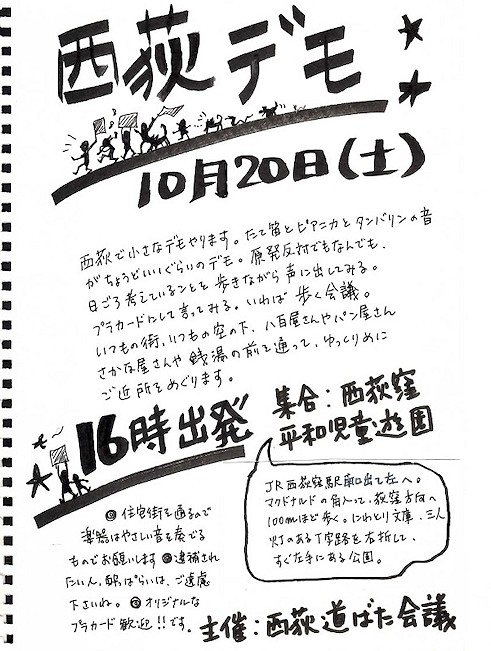 西荻デモ
10月20日(土)
西荻で小さなデモやります。たて笛とピアニカとタンバリンの音
がちょうどいいぐらいのデモ。原発反対でもなんでも、
日ごろ考えていることを歩きながら声に出してみる。
プラカードにして言ってみる。いわば歩く会議。
いつもの街、いつもの空の下、八百屋さんやパン屋さん
さかな屋さんや銭湯の前を通って、ゆっくりめに
ご近所をめぐります。
16時出発
集合:西荻窪
平和児童遊園
JR西荻窪駅南口出て左へ。
マクドナルドの角入って、荻窪方向へ
100mほど歩く。にわとり文庫、三人
灯のあるT字路を右折して、
すぐ左手にある公園。
住宅街を通るので
楽器はやさしい音を奏でる
ものでお願いします 逮捕され
たい人、酔っぱらいは、ご遠慮
下さいね。 オリジナルな
プラカード歓迎!!です。
主催:西荻道ばた会議